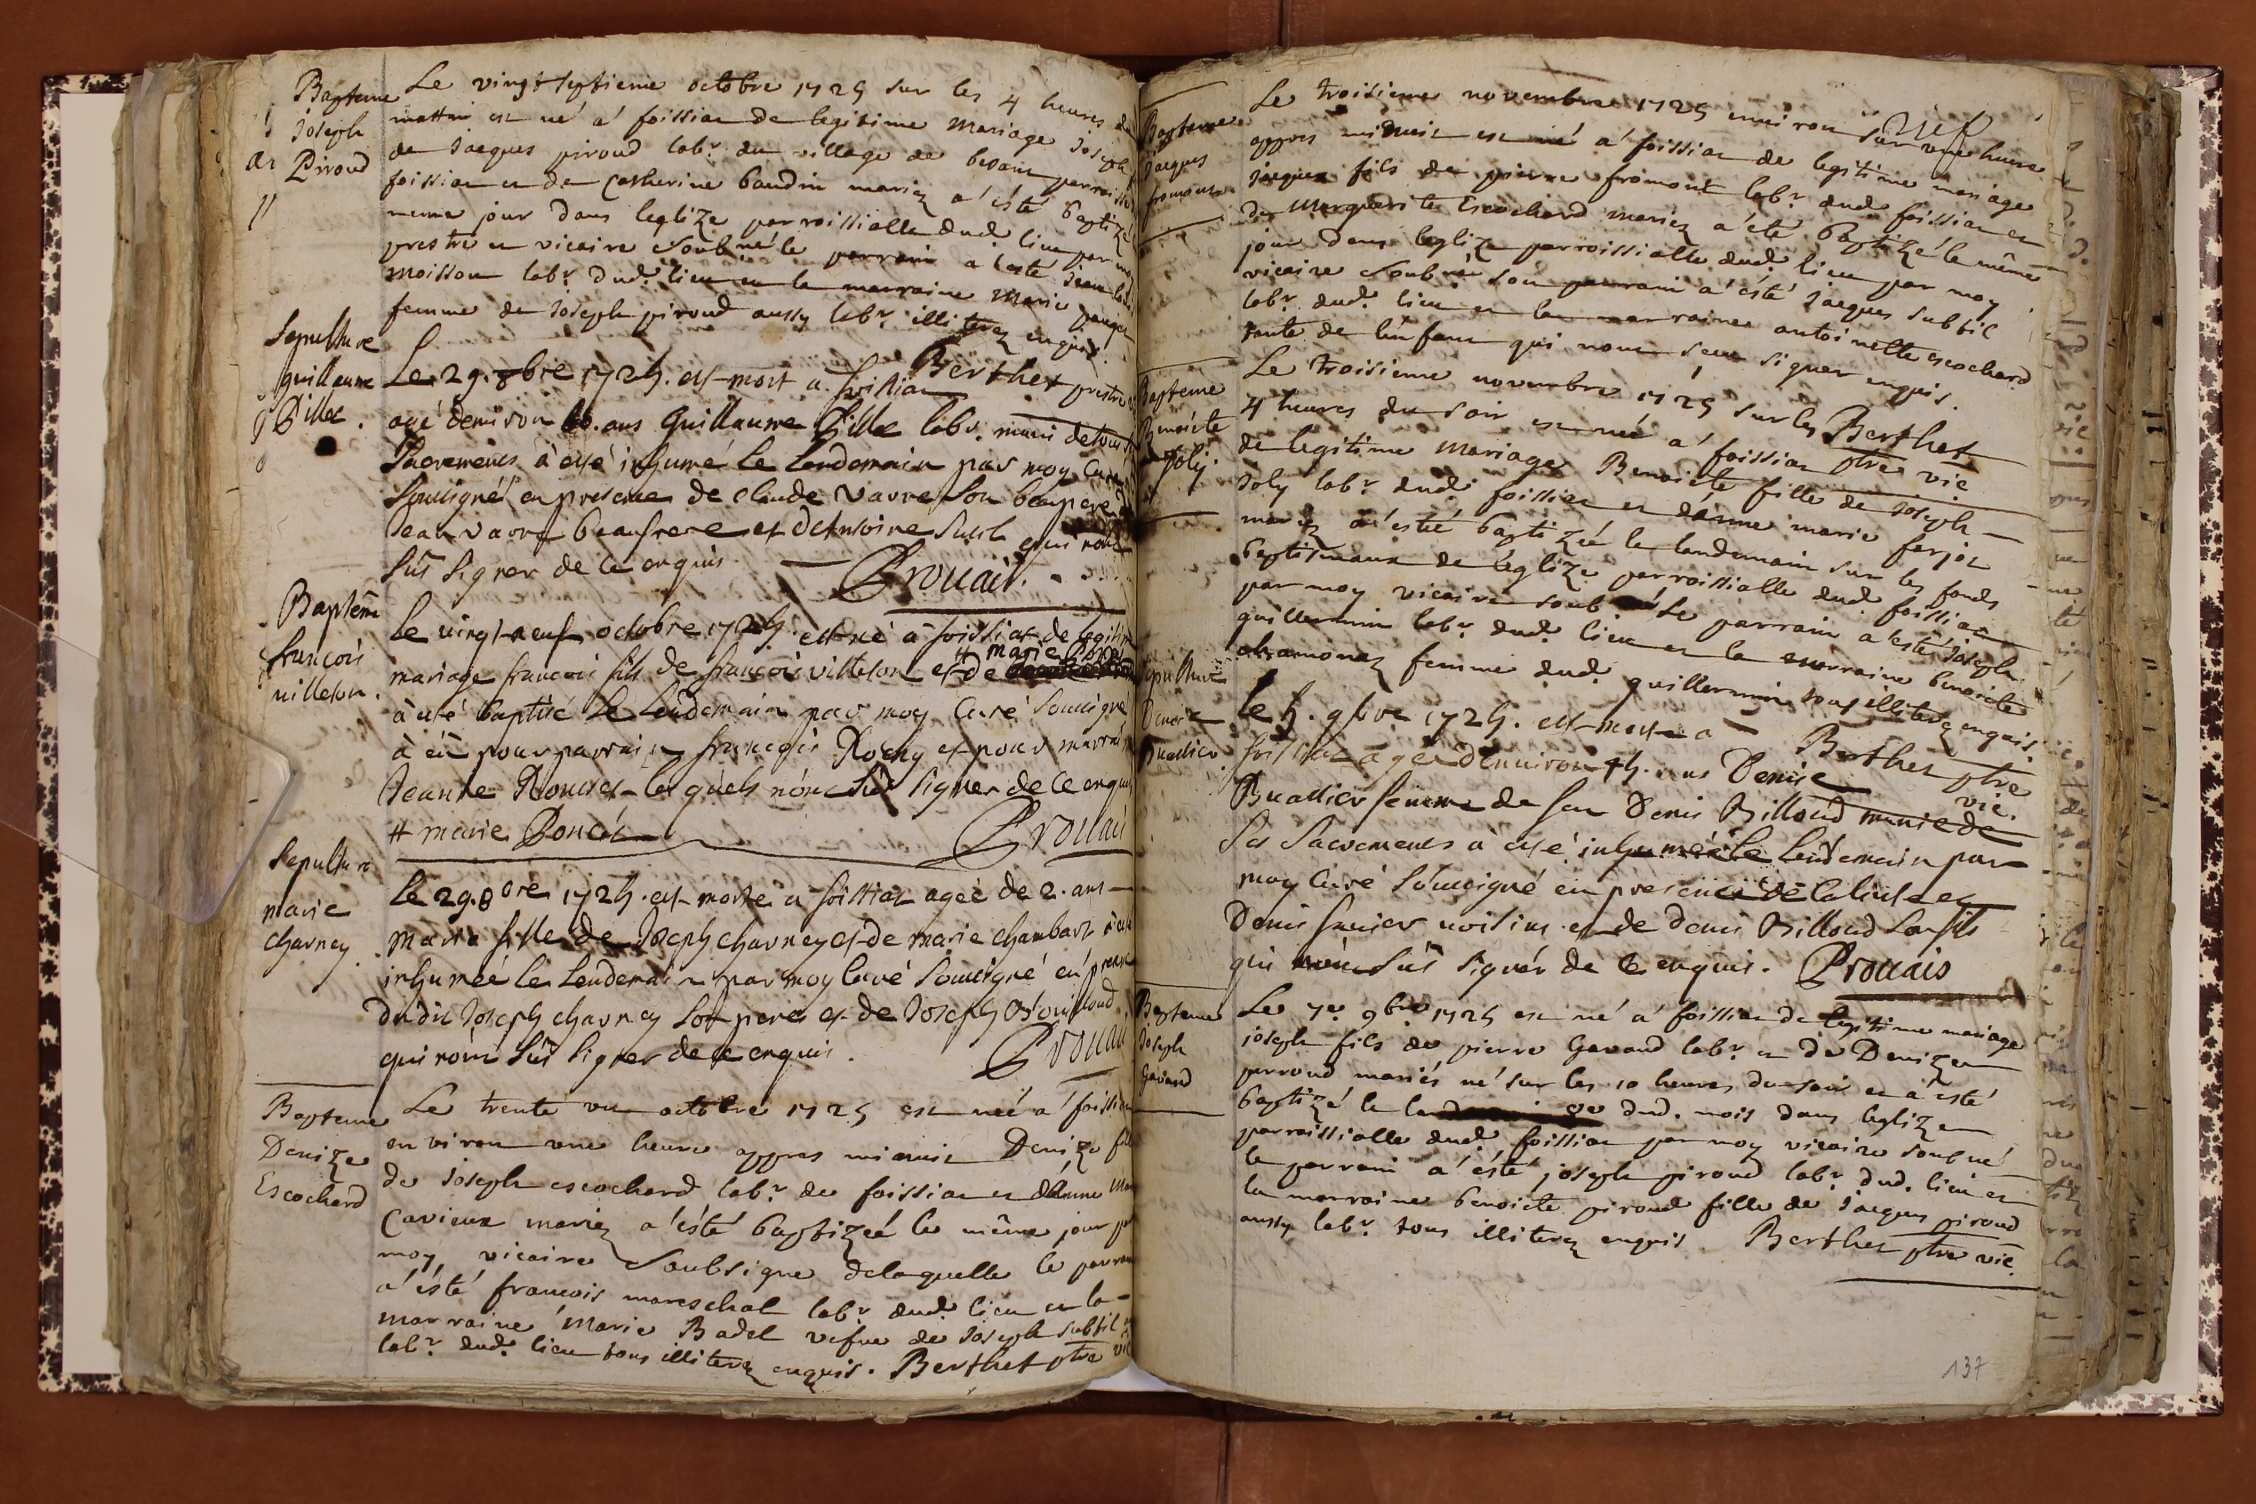 Bapteme
Joseph
Piroud
Le vingt septieme octobre 1725 sur les 4 heures du
mattin est né a foissiat de legitime mariage Joseph
de Jacques piroud labr. du village de besain parroisse
foissiat et de Catherine baudin mariez a été baptizé
meme jour dans leglize parroissialle dud. lieu par moy
prestre et vicaire soubné le parrain a esté Jean
moisson labr. dud. lieu et la marraine Marie
femme de Joseph piroud aussy labr. illiterez enquis.
Berthet prestre
Sepulture
guillaume
Pillet.
Le 29. 8bre 1725. est mort a foissiat
agé denviron 60. ans Guillaume Pillet labr. muni de tous
Sacrements à esté inhumé le lendemain par moy Curé
soussigné en presence de Claude Vavre son beaupere
Jean vavre beaufrere et dAntoine qui n'ont
sus signer de ce enquis.
Prouais.
Baptême
françois
villeton.
Le vingt-neuf octobre 1725. est né à foissiat de legitime
mariage francois fils de françois villeton et de # marie Poncet
à été baptisé le lendemain par moy Curé soussigné
à eû pour parrain françois Rochy et pour marraine
Jeanne lesquels n'ont sus signer de ce enquis
# marie Poncet
Prouais
Sepulture
marie
charney
Le 29. 8bre 1725. est morte a foissiat ageé de 2. ans
Marie fille de Joseph charney et de marie chambard à été
inhumeé le lendemain par moy Curé soussigné en presence
dudit Joseph charney son pere et de Joseph
qui n'ont sus signer de ce enquis.
Prouais
Bapteme
Denize
Escochard
Le trente un octobre 1725 est neé a foissiat
environ une heure appres minuit Denize fille
de Joseph escochard labr. de foissiat et danne Marie
Cavieux mariez a été baptizeé le même jour par
moy vicaire soubsigne delaquelle le parrain
a été francois mareschal labr. dud. lieu et la
marraine Marie Badel vefve de Joseph subtil
labr. dud. lieu tous illiterez enquis. Berthet ptre vic
Bapteme
Jacques
fromont
Le troisieme novembre 1725 environ sur une heure
appres minuit est né a foissiat de legitime mariage
Jacques fils de pierre fromont labr. dud. foissiat et
de Marguerite Escochard mariez a été baptizé le même
jour dans leglize parroissialle dud. lieu par moy
vicaire soubné son parrain a été Jacques subtil
labr. dud. lieu et la marraine antoinette escochard
tante de lenfant qui nont sceu signer enquis.
Berthet ptre vic
Bapteme
Benoicte
Joly.
Le troisieme novembre 1725 sur les
4 heures du soir est neé a foissiat
de legitime mariage Benoicte fille de Joseph
Joly labr. dud. foissiat et danne marie farjot
mariez a esté baptizeé le lendemain sur les fonds
baptismaux de leglize parroissialle dud. foissiat
par moy vicaire soubné le parrain a esté Joseph
guillermin labr. dud. lieu et la marraine benoicte
femme dud. guillermin tous illiterez enquis.
Berthet ptre vic.
Sepulture
Denise
Buattier
Le 5. 9bre 1725. est morte a
foissiat ageé denviron 75. ans Denise
Buattier femme de feu Denis Billoud munie de
ses Sacrements a esté inhumeé le lendemain par
moy Curé soussigné en presence de et
Denis voisins et de denis Billoud son fils
qui n'ont sus signer de ce enquis. Prouais
Bapteme
Joseph
Gavand
Le 7e. 9bre 1725 est né a foissiat de legitime mariage
joseph fils de pierre Gavand labr. et de Denize
perroud mariés né sur les 10 heures du soir et a esté
baptizé le dud. mois dans leglize
parroissialle dud. foissiat par moy vicaire soubné
le parrain a été joseph piroud labr. dud. lieu et
la marraine benoicte piroud fille de Jacques piroud
aussy labr. tous illiterez enquis. Berthet ptre vic.
137